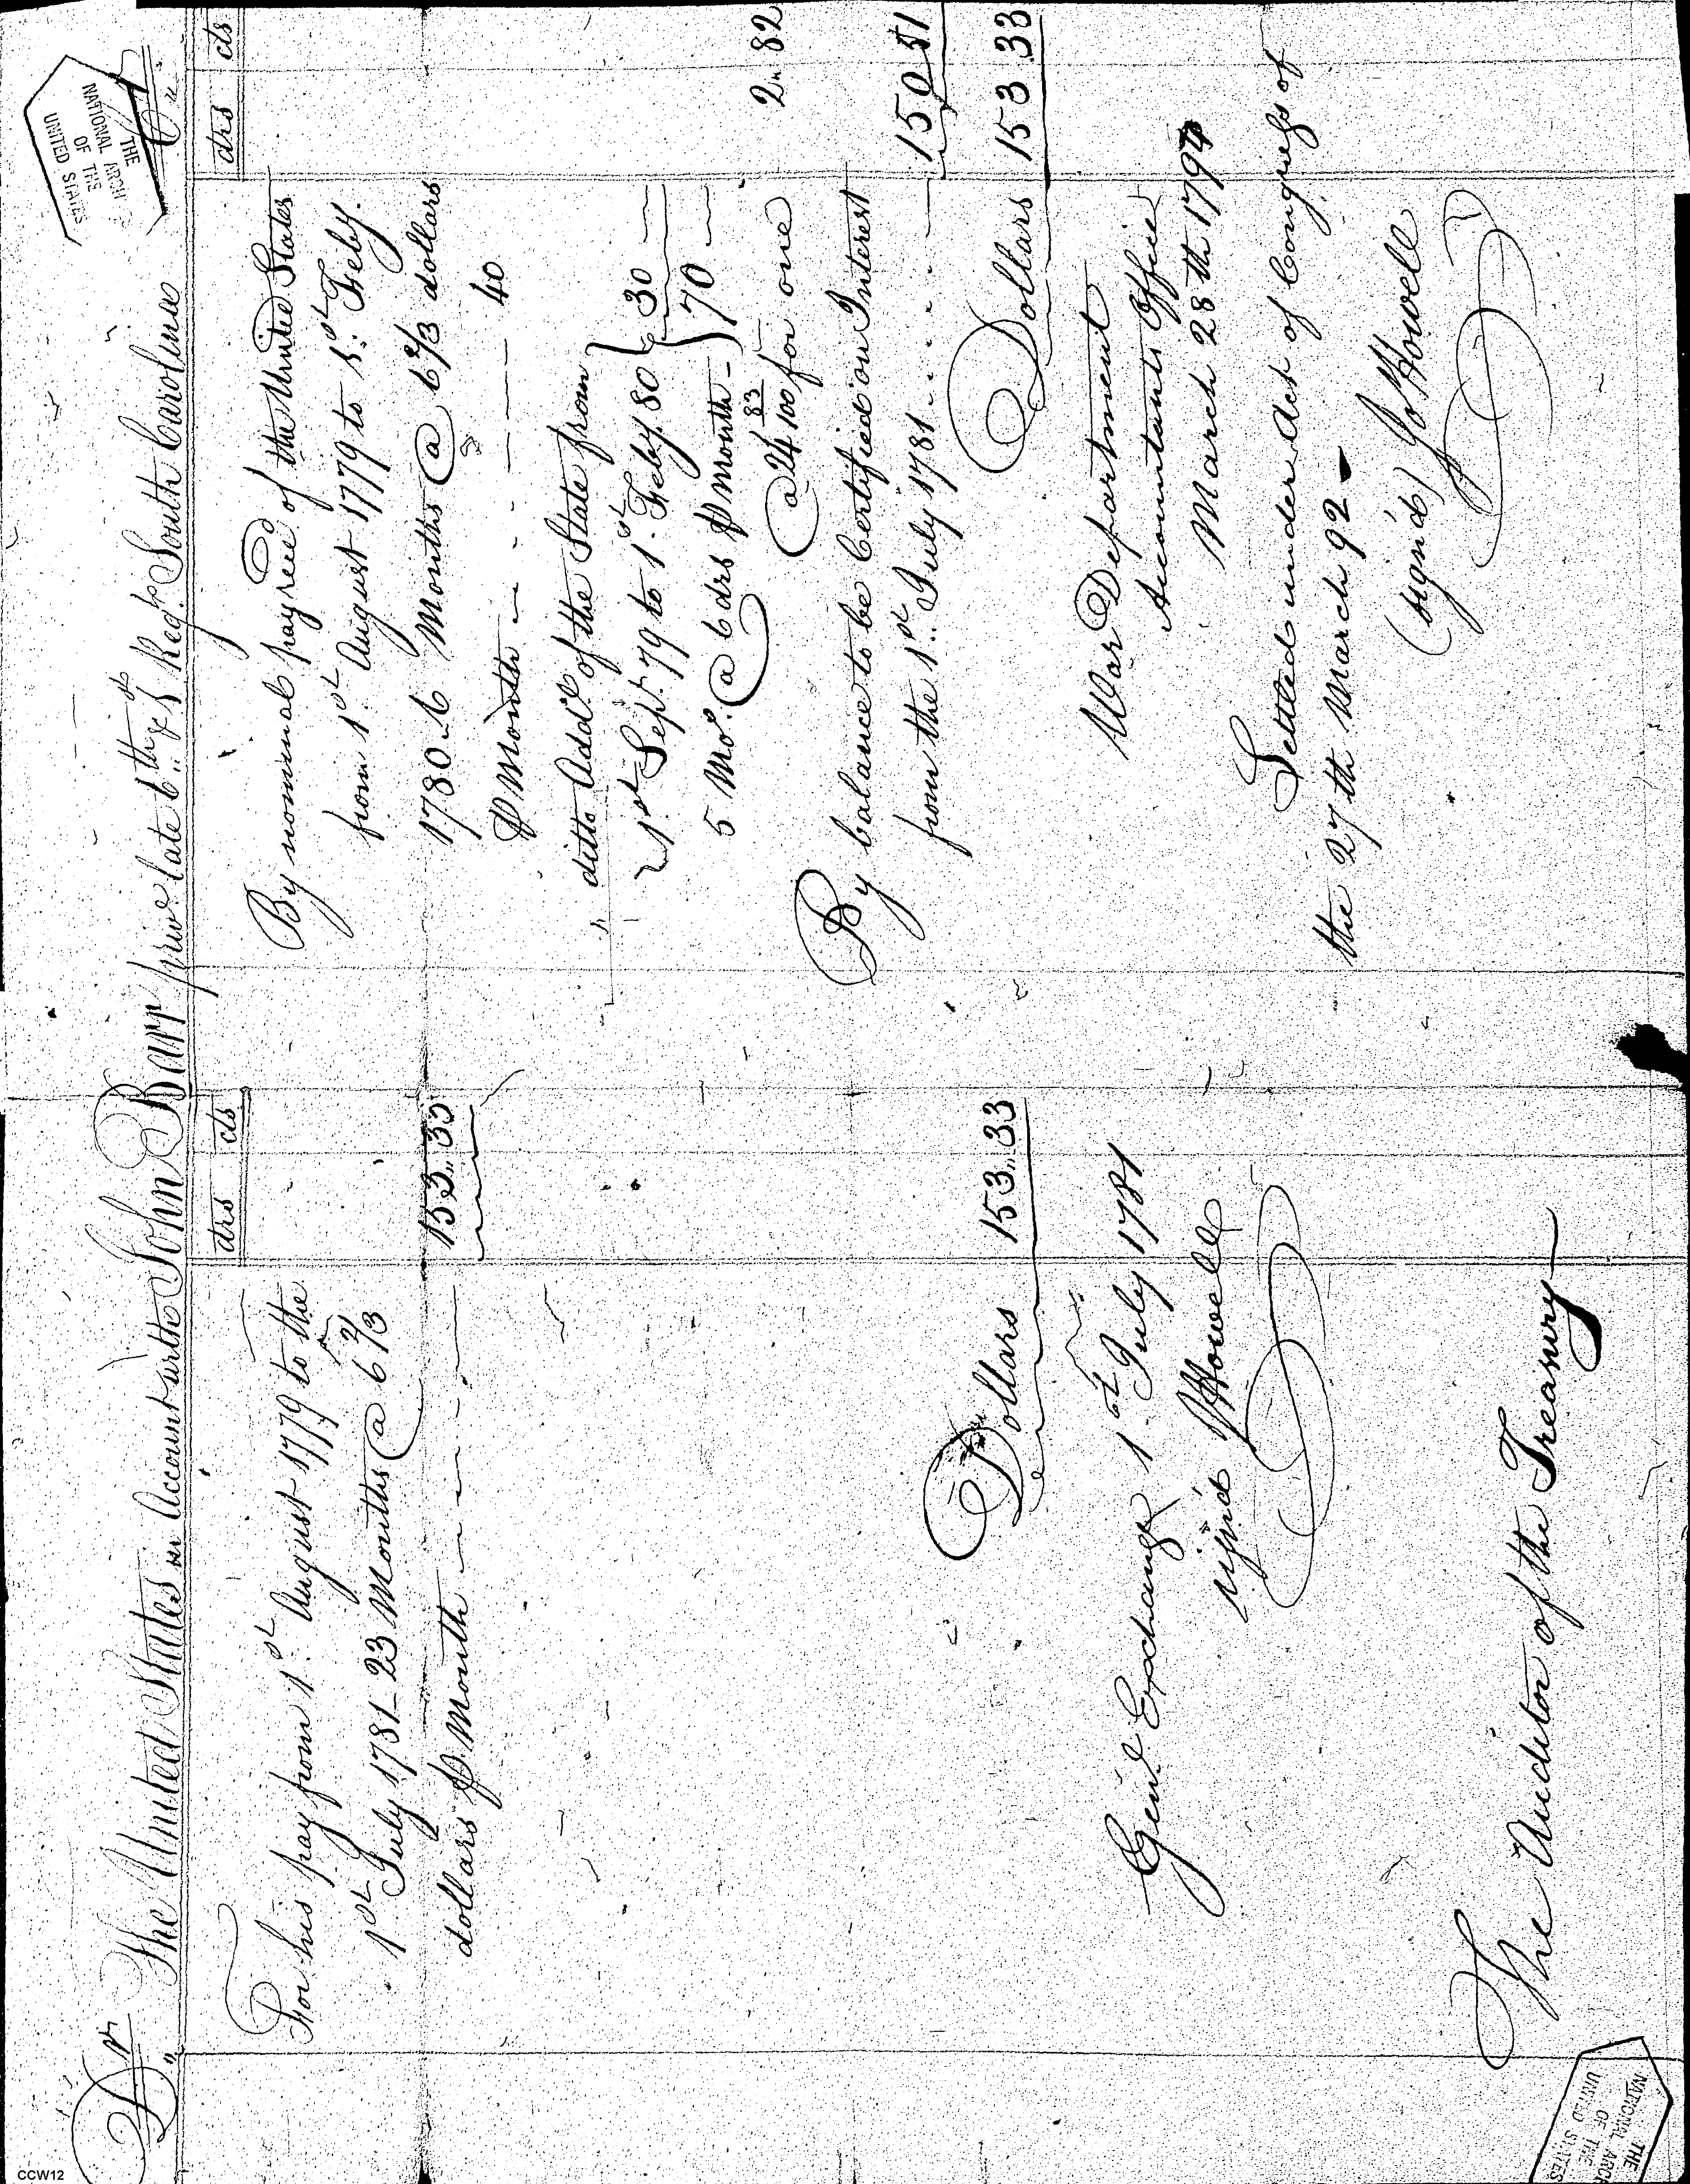 Dr The United States in Account with John Barr private late 6th & 1st Regt South Carolina Cr
drs cts
For his pay from 1st August 1779 to the
1st July 1781 23 Months @ 6 2/3
dollars ℔ Month 153..33
Dollars 153..33
Genl Exchange 1st July 1781
sign'd J Howell
The Auditor of the Treasury
drs cts
By nominal pay recd of the United States
from 1st August 1779 to 1st Feby.
1780 6 Months @ 6 2/3 dollars
℔ Month 40
ditto Addl of the State from
1st Sept 79 to 1st Feby. 80 } 30
5 Mos. @ 6 drs ℔ Month } 70
@ 24 83/100 for one 2.. 82
By balance to be Certified on Interest
from the 1st July 1781 150 51
Dollars 153 33
War Department
Accountants Office
March 28th 1794
Settled under Act of Congress of
the 27th March 92
(sign'd) Jo Howell
THE
NATIONAL ARCHI
OF THE
UNITED STATES
THE
NATIONAL ARCHI
OF THE
UNITED STATES
CCW12